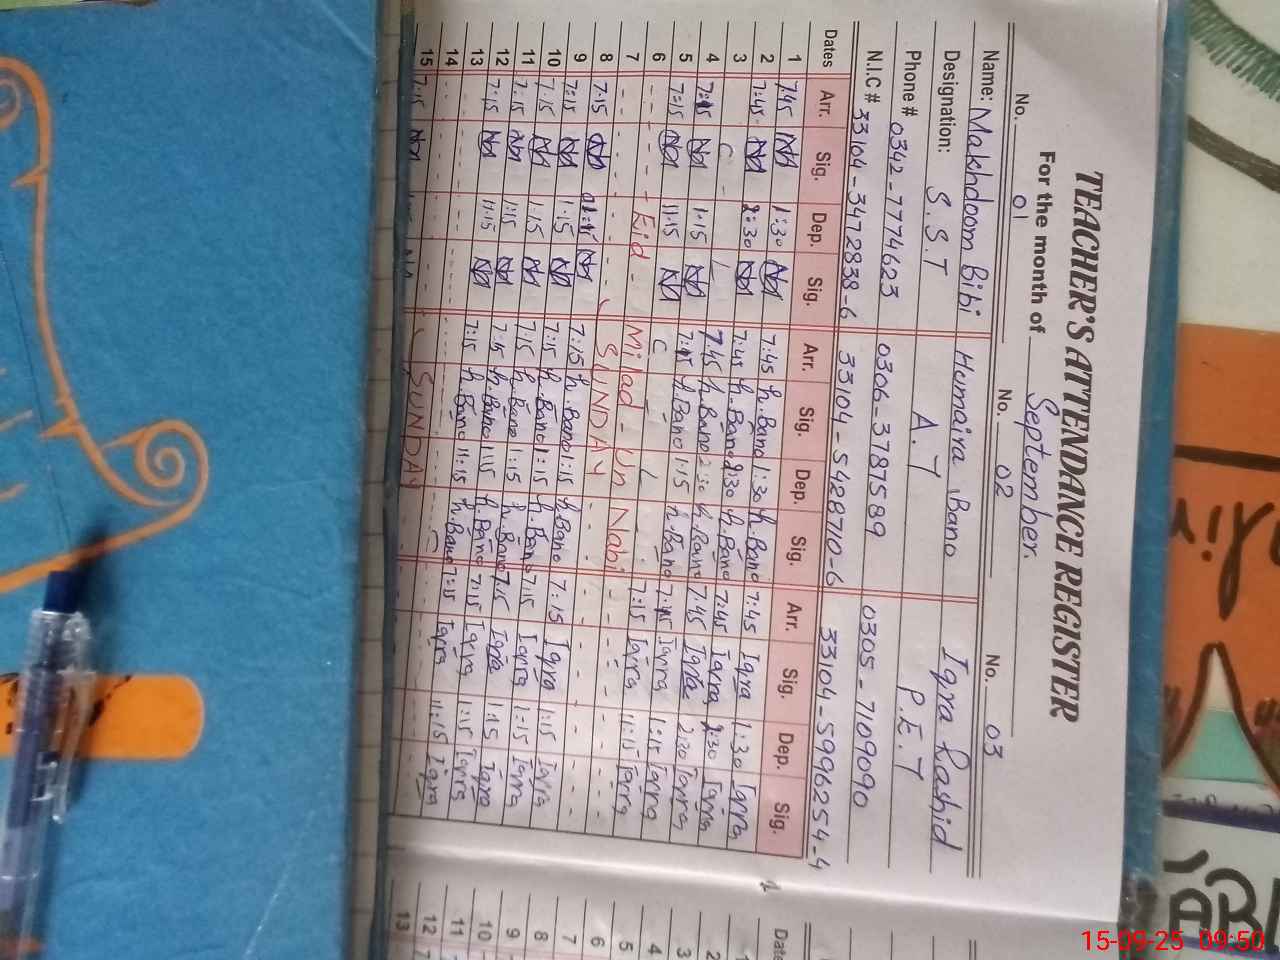 TEACHER'S ATTENDANCE REGISTER
For the month of September.
No. 01 No. 02 No. 03
Name: Makhdoom Bibi Humaira Bano Iqra Rashid
Designation: S.S.T A.T P.E.T
Phone # 0342-7774623 0306-3787589 0305-7109090
N.I.C # 33104-3472838-6 33104-5428710-6 33104-5996254-4
Dates Arr. Sig. Dep. Sig. Arr. Sig. Dep. Sig. Arr. Sig. Dep. Sig.
1 7:45 NA 1:30 NA 7:45 h.Bano 1:30 h.Bano 7:45 Iqra 1:30 Iqra
2 7:45 NA 2:30 NA 7:45 h.Bano 2:30 h.Bano 7:45 Iqra 2:30 Iqra
3 C L 7:45 h.Bano 2:30 h.Bano 7:45 Iqra 2:30 Iqra
4 7:15 NA 1:15 NA 7:15 h.Bano 1:15 h.Bano 7:15 Iqra 1:15 Iqra
5 7:15 NA 11:15 NA C L 7:15 Iqra 11:15 Iqra
6 Eid Milad-Un Nabi
7 SUNDAY
8 7:15 NA NA 7:15 h.Bano 1:15 h.Bano 7:15 Iqra 1:15 Iqra
9 7:15 NA 1:15 NA 7:15 h.Bano 1:15 h.Bano 7:15 Iqra 1:15 Iqra
10 7:15 NA 1:15 NA 7:15 h.Bano 1:15 h.Bano 7:15 Iqra 1:15 Iqra
11 7:15 NA 1:15 NA 7:15 h.Bano 1:15 h.Bano 7:15 Iqra 1:15 Iqra
12 7:15 NA 11:15 NA 7:15 h.Bano 11:15 h.Bano 7:15 Iqra 11:15 Iqra
13
14 SUNDAY
15 7:15 NA
1
2
3
4
5
6
7
8
9
10
11
12
13
15-09-25 09:50